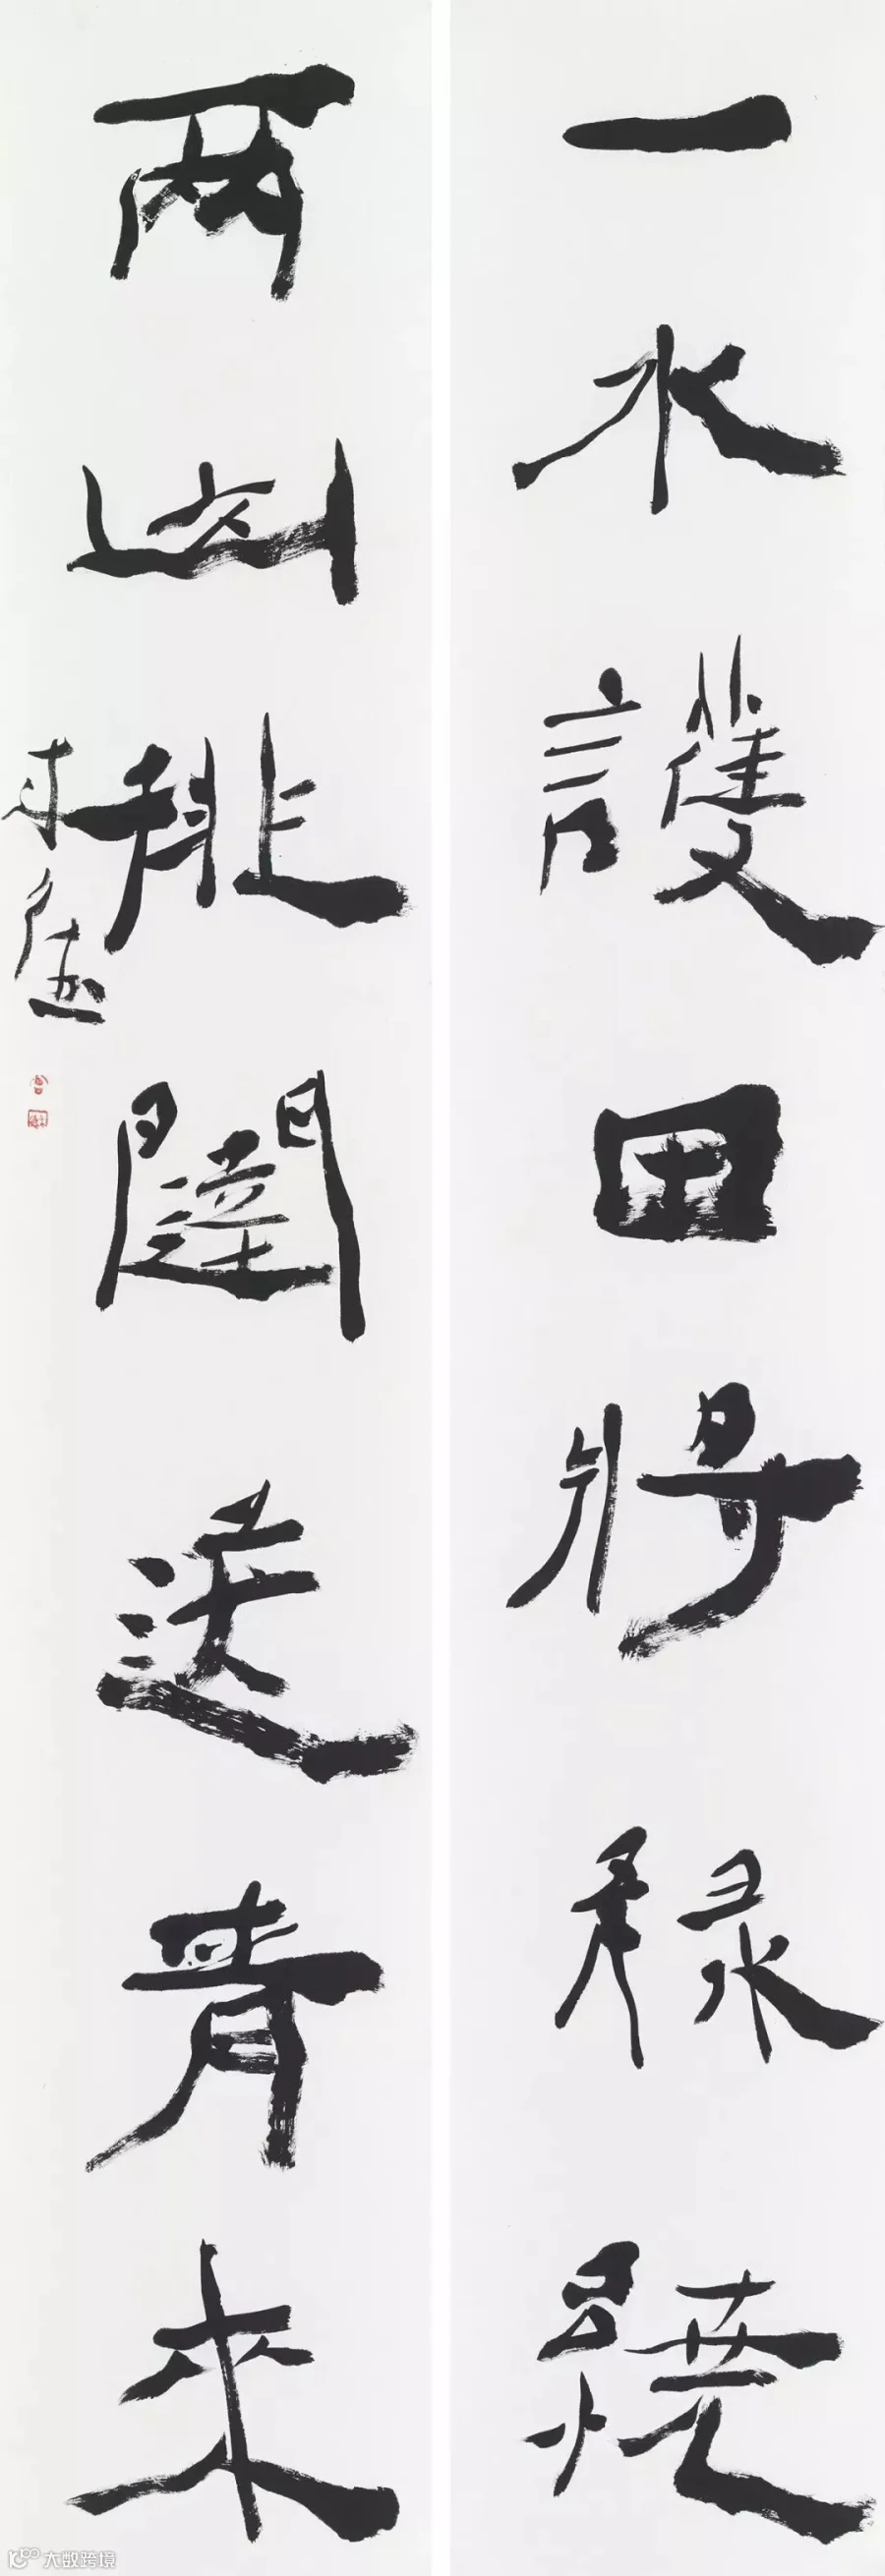 一水護田將綠繞
兩山排闥送青來
来德
大数跨境